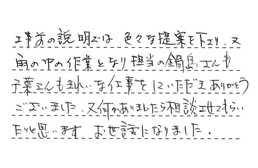 工事前の説明では 色々な提案を下さり、又
雨の中の作業となり担当の鍋島さんも
千葉さんもきれいな仕事をしていただきありがとう
ございました。又何かありましたら相談させてもらい
たいと思います。お世話になりました。